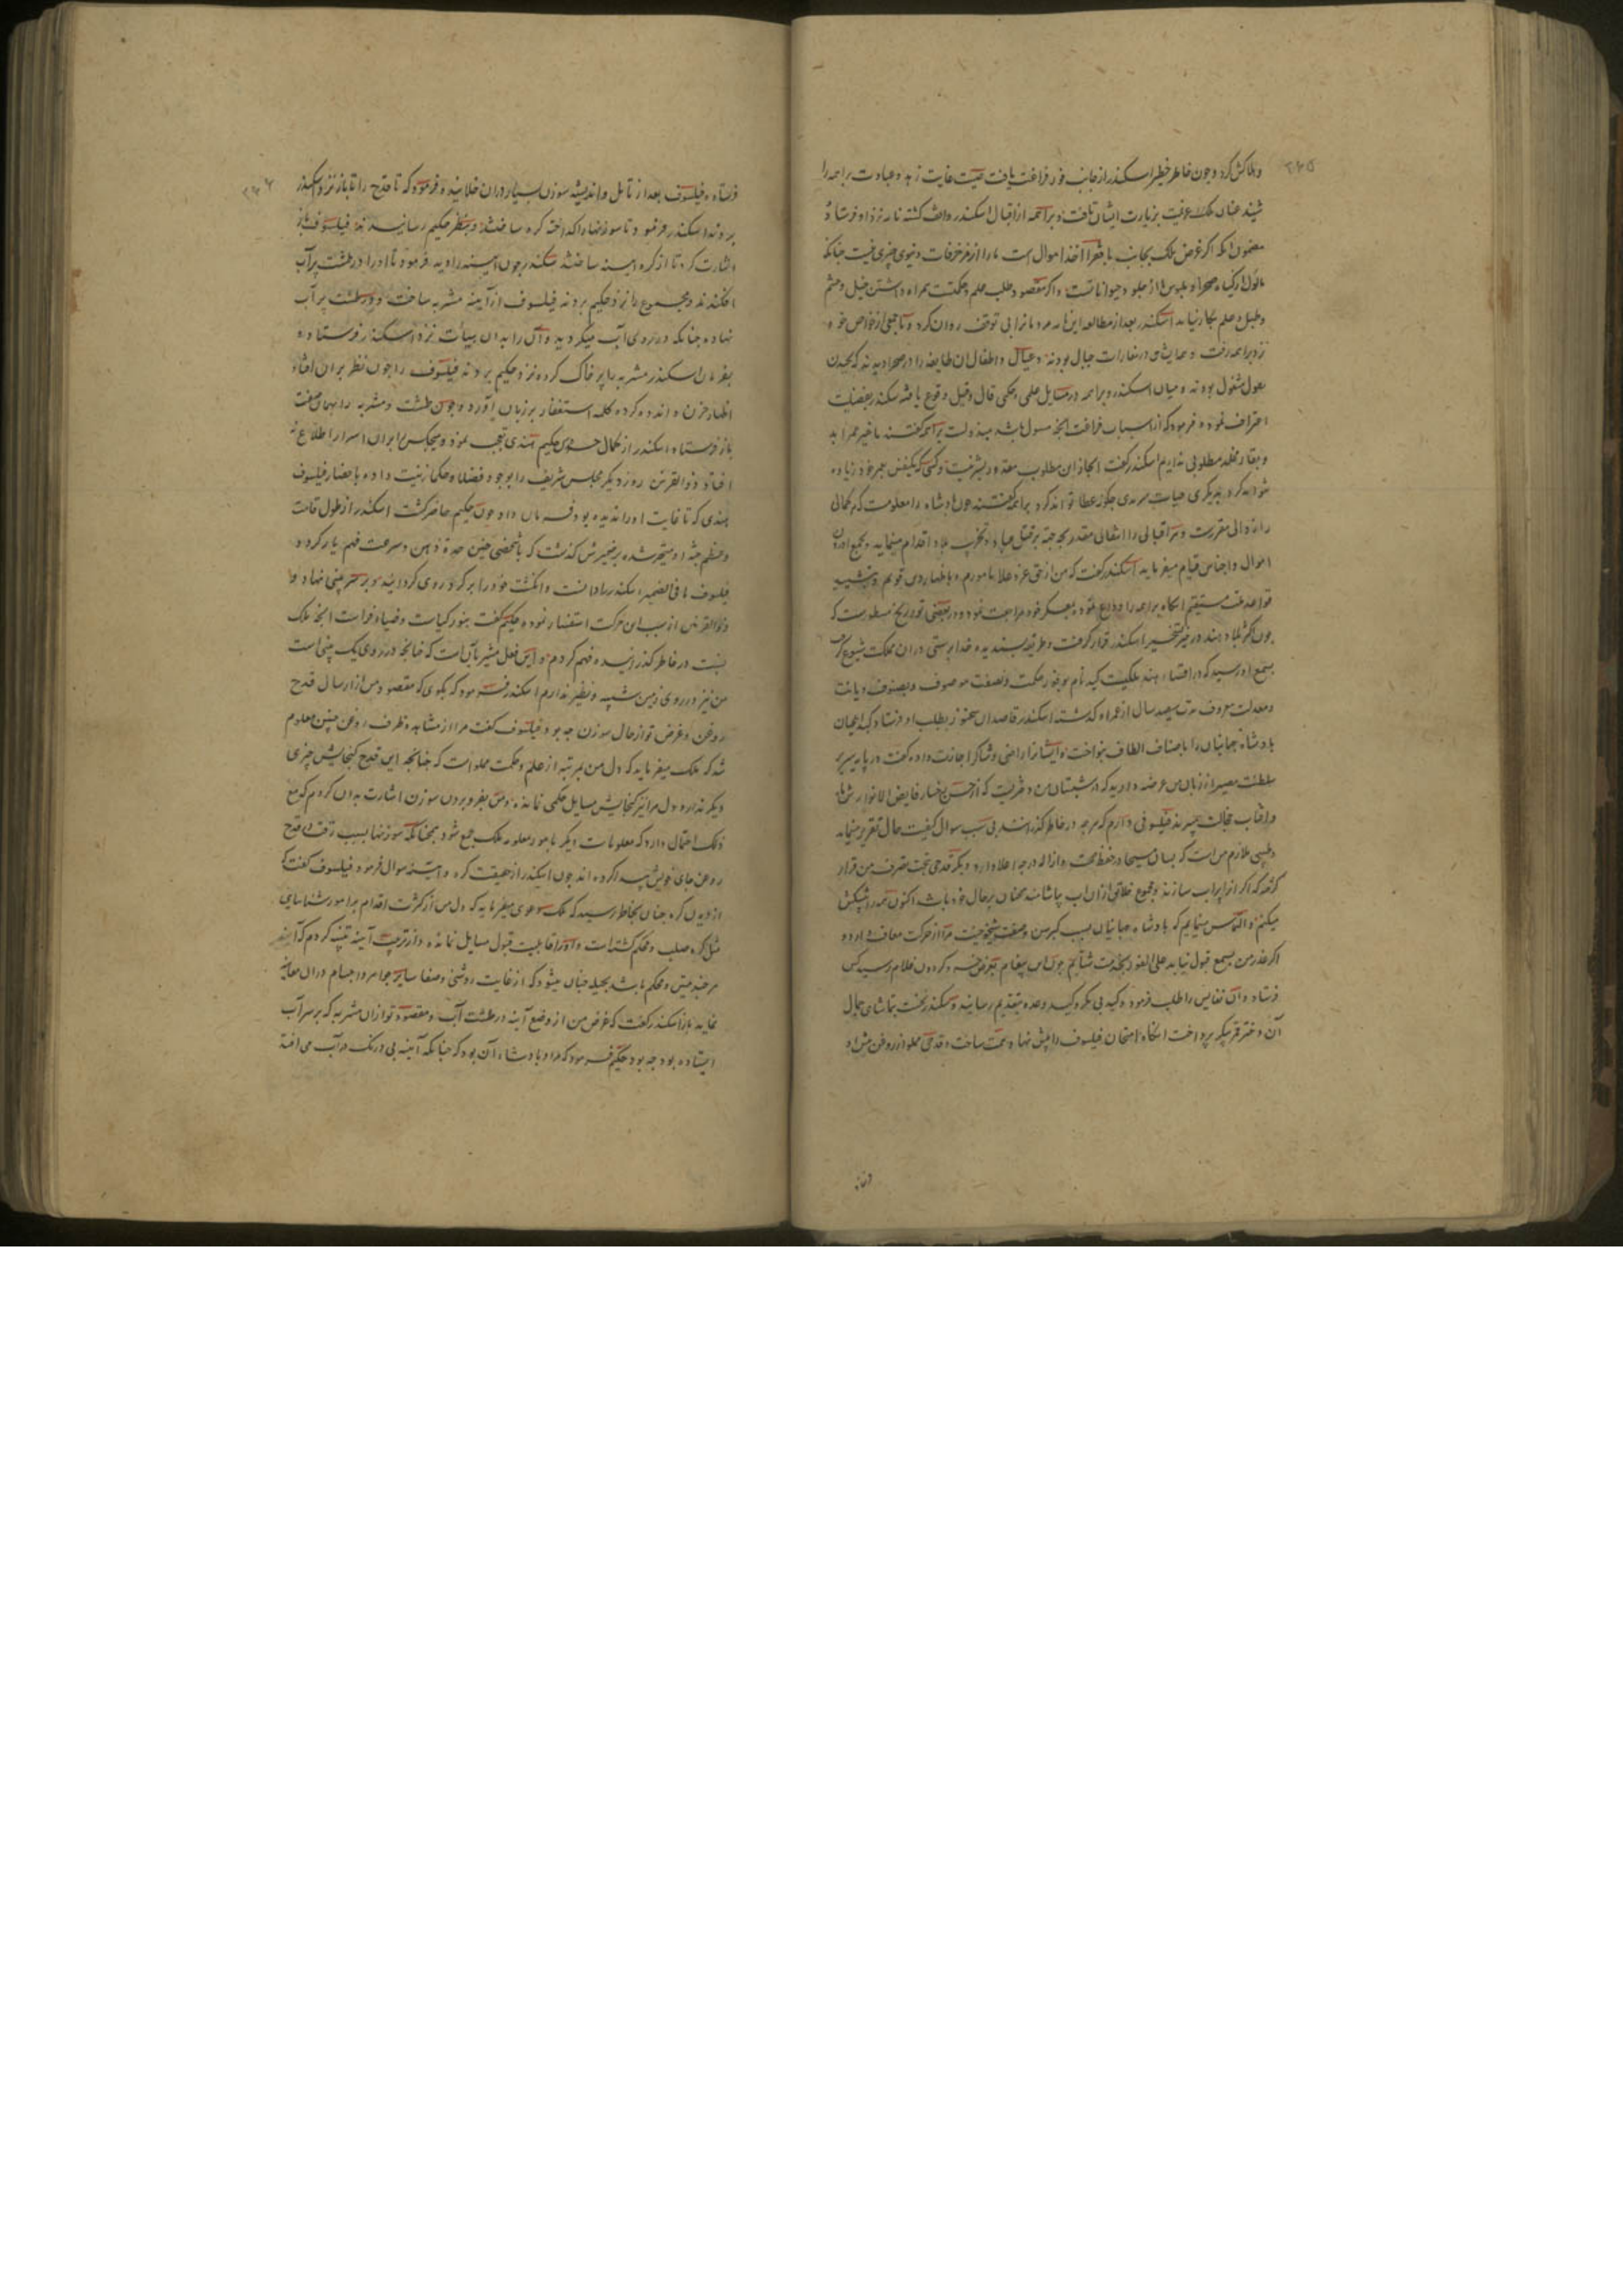 ۲۶۵
و هلاکش کرد و چون خاطر خطیر اسکندر از جانب فور فراغت یافت صیت غایت زهد و عبادت براهمه را
شنید عنان ملک عزیمت بزیارت ایشان تافت و براهمه از اقبال اسکندر واقف کشته نامه نزد او فرستاد
مضمون انکه اکر غرض ملک بجانب ما فقرا اخذ اموال است ما را از مزخرفات دنیوی چیزی نیست چنانکه
ماکول از کیاه صحرا و ملبوس ما از جلود حیوانات است و اکر مقصود طلب علم و حکمت همراه داشتن خیل و حشم
و طبل و علم بکار نیاید اسکندر بعد از مطالعه این نامه مردمانرا بی توقف روان کرد و با جمعی از خواص خود
نزد براهمه رفت و جمله ایشان در مغارات جبال بودند و عیال و اطفال ان طایفه را در صحرا دید که بچیدن
بقول مشغول بودند و میان اسکندر و براهمه در مسایل علمی و حکمی قال و قیل وقوع یافته سکندر بفضیلت
اعتراف نموده فرمود که از اسباب فراغت انچه مسول باشد مبذولست براهمه کفتند ما غیر عمر ابد
و بقاء مخلد مطلوبی نداریم اسکندر کفت انجاز ان مطلوب مقدور بشر نیست و کسی که یکنفس بعمر خود زیاده
نتواند کرد بدیکری حیات سرمدی چکونه عطا تواند کرد براهمه کفتند چون پادشاه را معلومست که هر کمالی
را زوالی مقررست و هر اقبالی را انتقالی مقدر بچه جهة بر قتل عباد و تخریب بلاد اقدام مینماید و بجمع
اموال و اجناس قیام میفرماید اسکندر کفت که من از حق عز و علا مامورم و باظهار دین قویم و تشیید
قواعد ملت مستقیم انکاه براهمه را وداع نموده بمعسکر خود مراجعت نمود و در بعضی تواریخ مسطورست که
چون اکثر بلاد هند در حیز تسخیر اسکندر قرار کرفت و طریقه پسندیده خدا پرستی در ان مملکت شیوع کرفت
بسمع او رسید که در اقصاء هند ملکیست کید نام بوفور حکمت و نصفت موصوف و بصنوف دیانت
و معدلت معروف مدت سیصد سال از عمر او کذشته اسکندر قاصدان سخنور بطلب او فرستاد کید اعیان
پادشاه جهانیان را باصناف الطاف بنواخت و ایشانرا راضی و شاکر اجازت داده کفت در پایه سریر
سلطنت مصیر از زبان من عرضه دارید که در شبستان من دختریست که از حسن رخسار فایض الانوار
آفتاب خجالت میبرد و فیلسوفی دارم که هرچه در خاطر کذرد بی سبب سوال کیفیت حال تقریر مینماید
و طبیبی ملازم من است که بسان مسیحا در حفظ صحت و ازاله درجه اعلا دارد و دیکر قدحی بتحت تصرف من قرار
کرفته که اکر انرا پر آب سازند و مجموع خلایق از ان آب بیاشامند همچنان بر حال خود باشد اکنون همه را پیشکش
میکنم و التماس مینمایم که پادشاه جهانیان بسبب کبر سن و ضعف شیخوخیت مرا از حرکت معاف دارد و
اکر عذر من بسمع قبول نیاید علی الفور بخدمت شتابم چون این پیغام بعرض خسرو کردون غلام رسید کس
فرستاد و ان نفایس را طلب فرمود و کید بی مکر و کید وعده بتقدیم رسانید و سکندر نخست بتماشای جمال
آن دختر قمر پیکر پرداخت انکاه امتحان فیلسوف را پیش نهاد همت ساخت و قدحی مملو از روغن پیش او
فرستاد
۲۶۶
فرستاد و فیلسوف بعد از تامل و اندیشه سوزن بسیار در ان خلانید و فرمود که تا قدح را باز نزد اسکندر
بردند اسکندر فرمود تا سوزنها را کداخته کره ساختند و بنظر حکیم رسانیدند فیلسوف
اشارت کرد تا از کره اینه ساختند سکندر چون آیینه را دید فرمود تا او را در طشت پر آب
افکندند و مجموع را نزد حکیم بردند فیلسوف از آیینه مشربه ساخت و در طشت پر آب
نهاد چنانکه در روی آب میکردید و آن را بدان هیات نزد اسکندر فرستاد و
بفرمان اسکندر مشربه را پر خاک کرده نزد حکیم بردند فیلسوف را چون نظر بر ان افتاد
اظهار حزن و اندوه کرده کلمه استغفار بر زبان آورد و چون طشت و مشربه را بهمان صفت
باز فرستاد اسکندر از کمال حدس حکیم هندی تعجب نمود و هیچکس را بر ان اسرار اطلاع نه
افتاد ذوالقرنین روز دیکر مجلس شریف را بوجود فضلا و حکما زینت داده باحضار فیلسوف
هندی که تا غایت او را ندیده بود فرمان داد چون حکیم حاضر کشت اسکندر از طول قامت
و عظم جثه او متحیر شده بر ضمیرش کذشت که با شخصی چنین حدة ذهن و سرعت فهم یار کردد
فیلسوف ما فی الضمیر اسکندر را دانست و انکشت خود را بر کرد روی کردانیده بر سر بینی نهاد و
ذوالقرنین از سبب این حرکت استفسار نموده حکیم کفت بنور کیاست و ضیاء فراست انچه ملک
بنسبت در خاطر کذرانیده فهم کردم و این فعل مشیر بآن است که چنانچه در روی یک بینی است
من نیز در روی زمین شبیه و نظیر ندارم اسکندر فرمود که بکوی که مقصود من از ارسال قدح
روغن و غرض تو از حال سوزن چه بود فیلسوف کفت مرا از مشاهده ظرف روغن چنین معلوم
شد که ملک میفرماید که دل من بمرتبه از علم و حکمت مملو است که چنانچه این قدح کنجایش چیزی
دیکر ندارد دل مرا نیز کنجایش مسایل حکمی نمانده و من بفرو بردن سوزن اشارت بدان کردم که مع
ذلک احتمال دارد که معلومات دیکر با معلوم ملک جمع شود همچنانکه سوزنها بسبب دقت در قدح
روغن جای خویش پیدا کرده اند چون اسکندر از حقیقت کره و اینه سوال فرمود فیلسوف کفت که
از دیدن کره چنان بخاطر رسید که ملک میفرماید که دل من از کثرت اقدام بر امور
مثل کره صلب و محکم کشته است و او را قابلیت قبول مسایل نمانده و از ترتیب آینه تنبیه کردم که آهن
هر چند متین و محکم باشد بحیله چنان میشود که از غایت روشنی و صفا سایر جواهر و اجسام در ان معاینه
نماید باز اسکندر کفت که غرض من از وضع آینه در طشت آب و مقصود تو از ان مشربه که بر سر آب
ایستاده بود چه بود حکیم فرمود که مراد پادشاه آن بود که چنانکه آینه بی درنک در آب می افتد